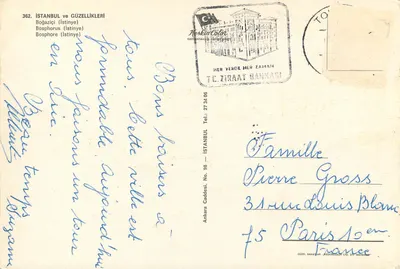 362. İSTANBUL ve GÜZELLİKLERİ
Boğaziçi (İstinye)
Bosphorus (Istinye)
Bosphore (Istinye)
Bons baisers à
tous. Cette ville est
formidable. Aujourd'hui
nous faisons un tour
en
Beau temps
Suzanne
Ankara Caddesi, No. 98 — İSTANBUL Tel.: 27 34 00
HER YERDE HER ZAMAN
T.C. ZİRAAT BANKASI
TO
Famille
Pierre Gross
31 rue Louis Blanc
75 Paris 10em
France